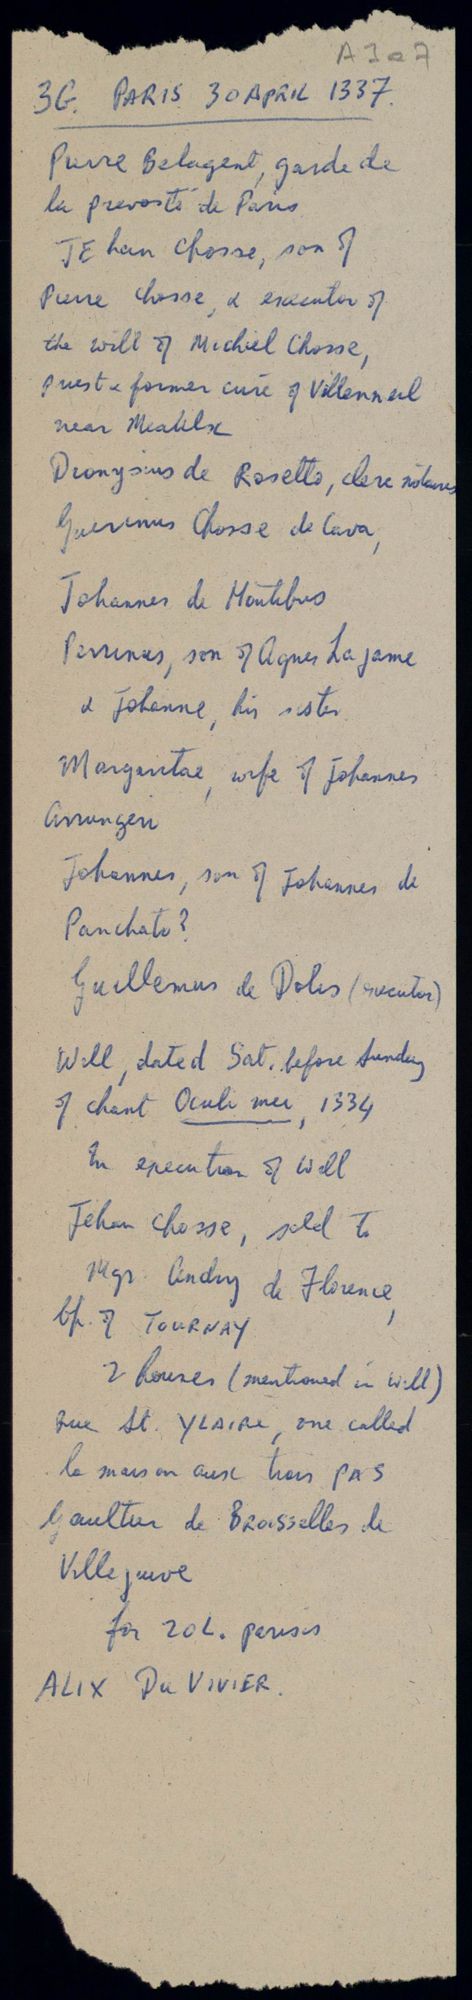 A 307
3G. PARIS 30 APRIL 1337.
Pierre Belagent, garde de
la prevosté de Paris
JEhan Chosse, son of
Pierre Chosse, & executor of
the will of Michiel Chosse,
priest & former curé of
near
Dionysius de Rosetto, clerc notaires
Guerinus Chosse de Cava,
Johannes de
Perrinus, son of Agnes La jame
& Johanne, his sister
Margaritae, wife of Johannes
Arrungeri
Johannes, son of Johannes de
Panchato?
Guillemus de Dolis (executor)
Will, dated Sat. before Sunday
of chant Oculi mei, 1334
In execution of Will
Jehan Chosse, sold to
Mgr. Andry de Florence,
bp. of TOURNAY
2 houses (mentioned in will)
rue St. YLAIRE, one called
la maison aux trois PAS
Gaultier de BROISSELLES de
Villejuive
for 20 L. parisis
ALIX Du VIVIER.